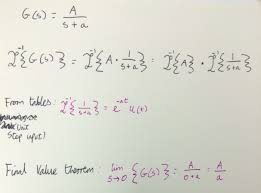 G(s) = A / (s+a)
ℒ⁻¹{G(s)} = ℒ⁻¹{A · 1/(s+a)} = ℒ⁻¹{A} · ℒ⁻¹{1/(s+a)}
From tables: ℒ⁻¹{1/(s+a)} = e^(-at) u(t)
(unit
step input)
Final Value theorem: lim s→0 {G(s)} = A/(0+a) = A/a